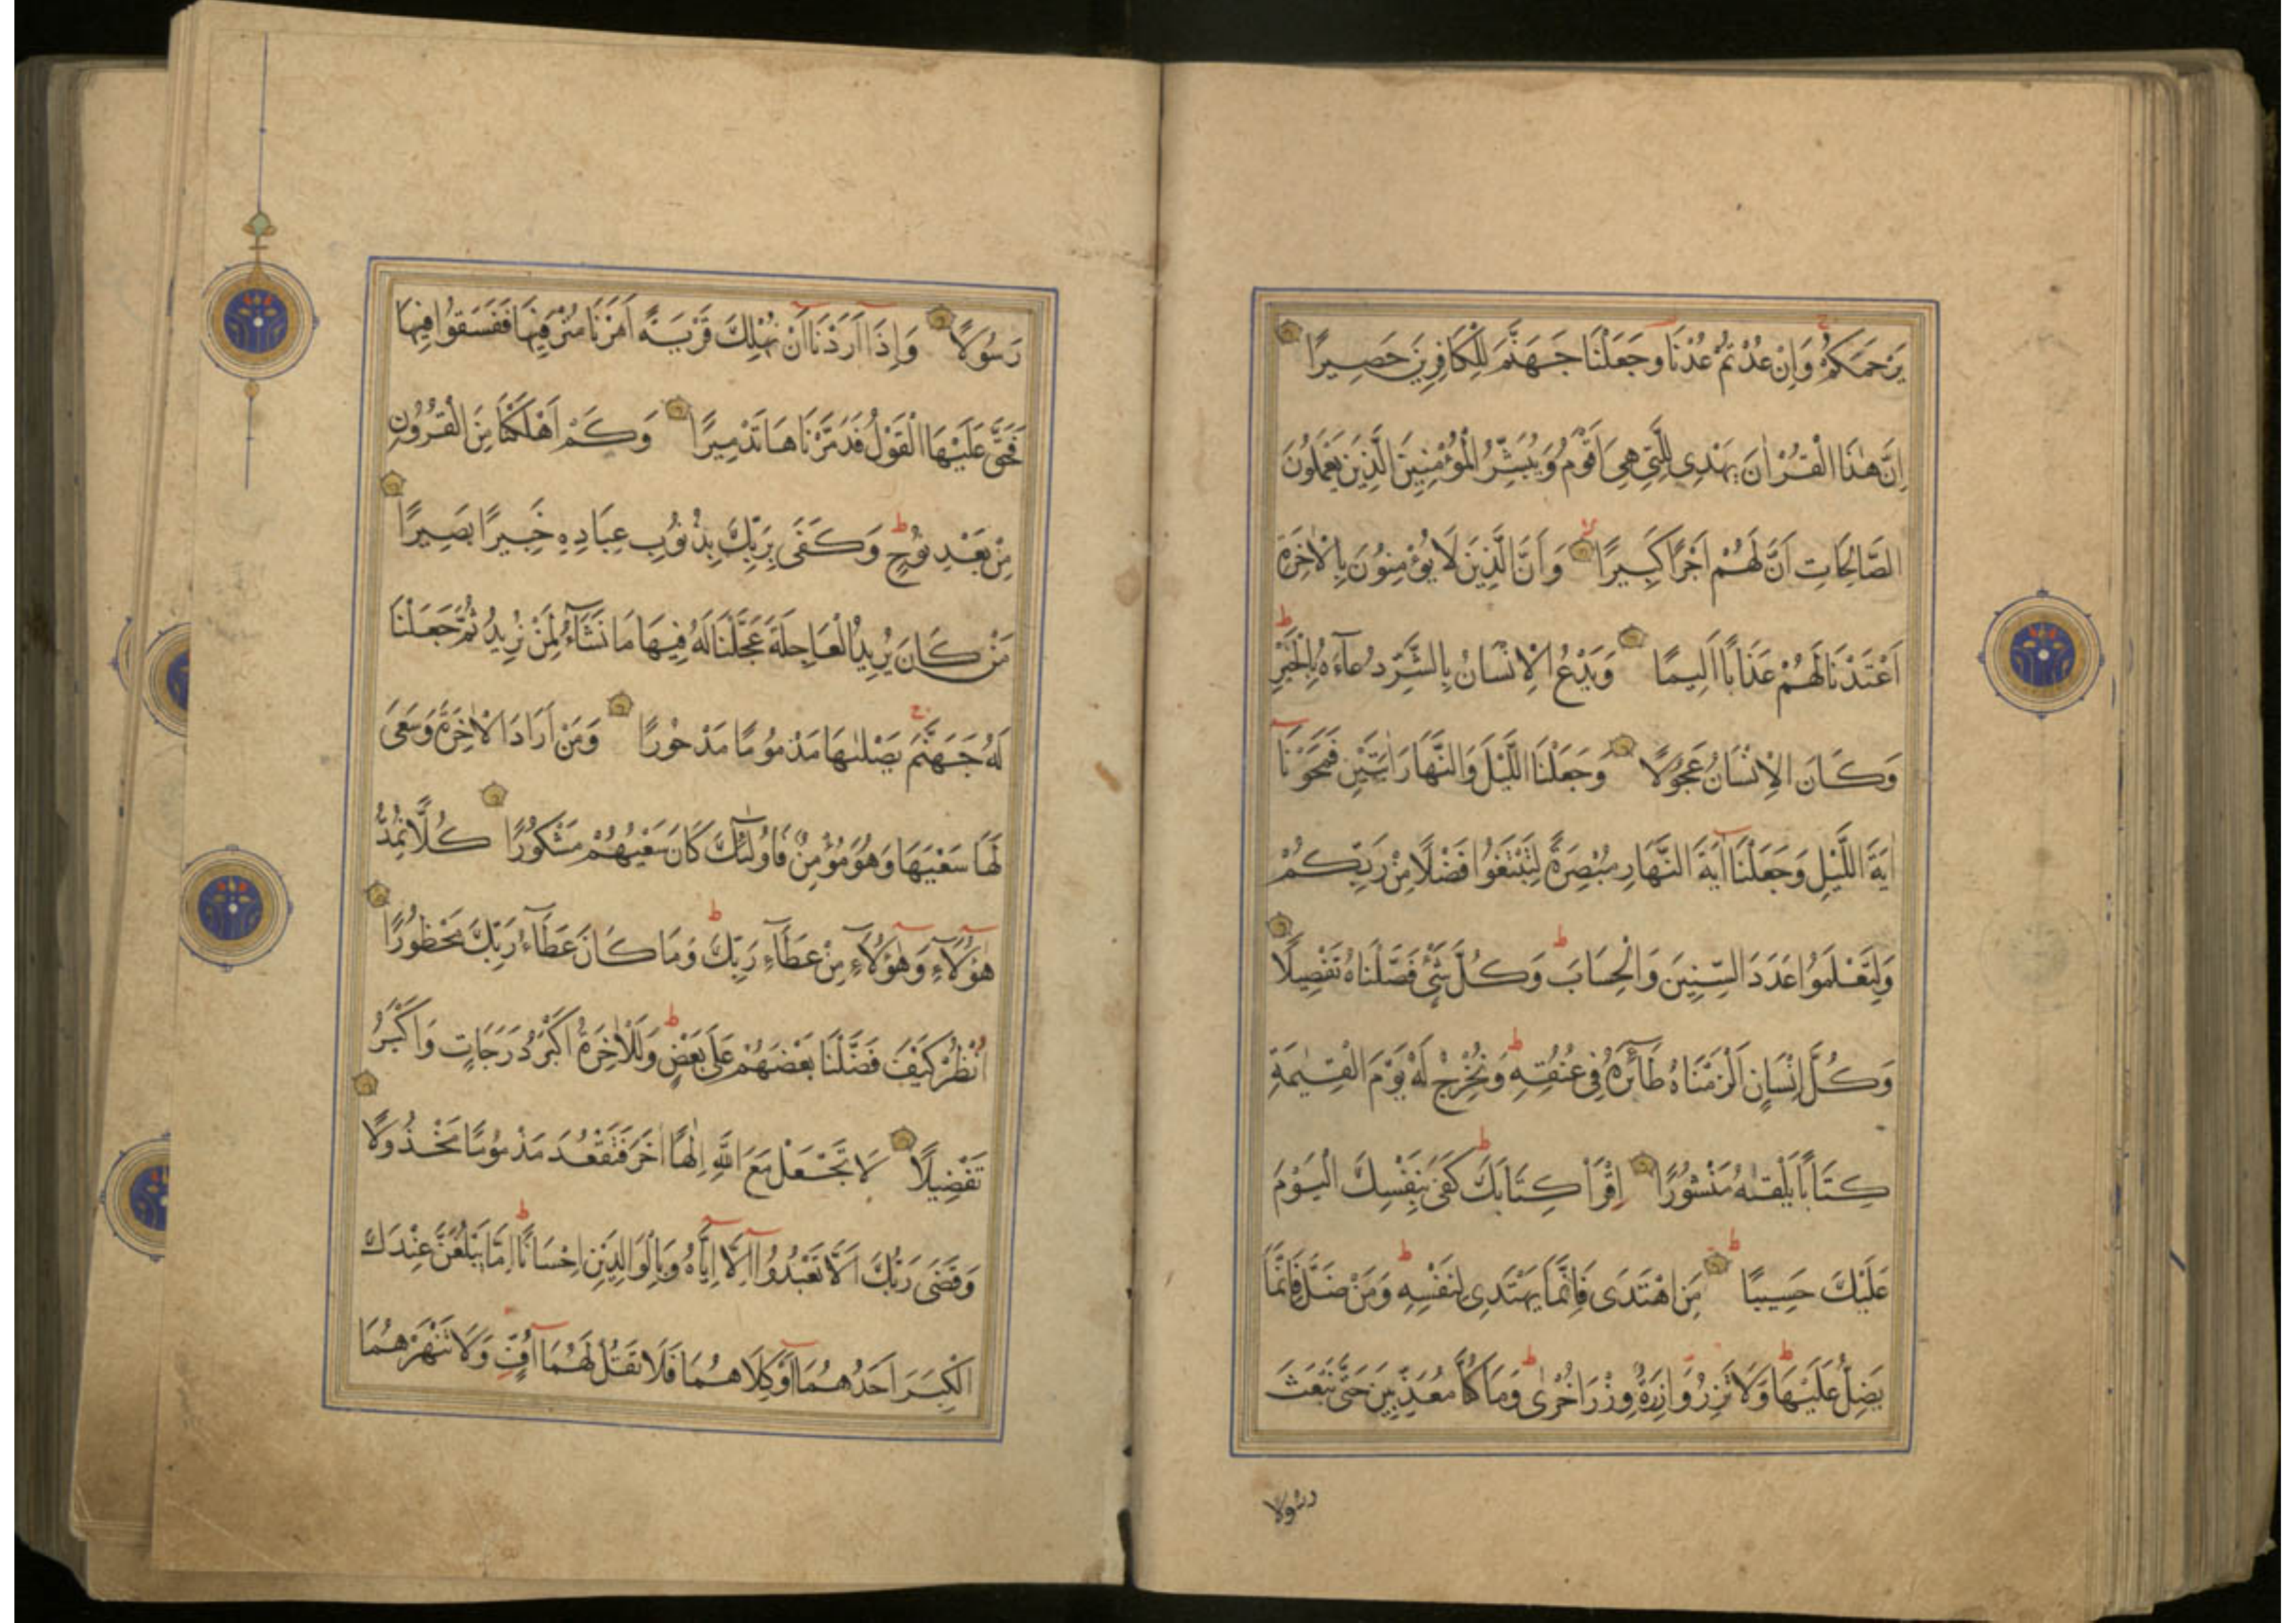 يَرْحَمَكُمْ وَاِنْ عُدْتُمْ عُدْنَا وَجَعَلْنَا جَهَنَّمَ لِلْكَافِرِينَ حَصِيرًا
اِنَّ هٰذَا الْقُرْاٰنَ يَهْدِى لِلَّتِى هِىَ اَقْوَمُ وَيُبَشِّرُ الْمُؤْمِنِينَ الَّذِينَ يَعْمَلُونَ
الصَّالِحَاتِ اَنَّ لَهُمْ اَجْرًا كَبِيرًا وَاَنَّ الَّذِينَ لَا يُؤْمِنُونَ بِالْاٰخِرَةِ
اَعْتَدْنَا لَهُمْ عَذَابًا اَلِيمًا وَيَدْعُ الْاِنْسَانُ بِالشَّرِّ دُعَآءَهُ بِالْخَيْرِ
وَكَانَ الْاِنْسَانُ عَجُولًا وَجَعَلْنَا اللَّيْلَ وَالنَّهَارَ اٰيَتَيْنِ فَمَحَوْنَآ
اٰيَةَ اللَّيْلِ وَجَعَلْنَآ اٰيَةَ النَّهَارِ مُبْصِرَةً لِتَبْتَغُوا فَضْلًا مِنْ رَبِّكُمْ
وَلِتَعْلَمُوا عَدَدَ السِّنِينَ وَالْحِسَابَ وَكُلَّ شَىْءٍ فَصَّلْنَاهُ تَفْصِيلًا
وَكُلَّ اِنْسَانٍ اَلْزَمْنَاهُ طَآئِرَهُ فِى عُنُقِهِ وَنُخْرِجُ لَهُ يَوْمَ الْقِيٰمَةِ
كِتَابًا يَلْقٰىهُ مَنْشُورًا اِقْرَاْ كِتَابَكَ كَفَى بِنَفْسِكَ الْيَوْمَ
عَلَيْكَ حَسِيبًا مَنِ اهْتَدَى فَاِنَّمَا يَهْتَدِى لِنَفْسِهِ وَمَنْ ضَلَّ فَاِنَّمَا
يَضِلُّ عَلَيْهَا وَلَا تَزِرُ وَازِرَةٌ وِزْرَ اُخْرٰى وَمَا كُنَّا مُعَذِّبِينَ حَتَّى نَبْعَثَ
رسولا
رَسُولًا وَاِذَآ اَرَدْنَآ اَنْ نُهْلِكَ قَرْيَةً اَمَرْنَا مُتْرَفِيهَا فَفَسَقُوا فِيهَا
فَحَقَّ عَلَيْهَا الْقَوْلُ فَدَمَّرْنَاهَا تَدْمِيرًا وَكَمْ اَهْلَكْنَا مِنَ الْقُرُونِ
مِنْ بَعْدِ نُوحٍ وَكَفَى بِرَبِّكَ بِذُنُوبِ عِبَادِهِ خَبِيرًا بَصِيرًا
مَنْ كَانَ يُرِيدُ الْعَاجِلَةَ عَجَّلْنَا لَهُ فِيهَا مَا نَشَآءُ لِمَنْ نُرِيدُ ثُمَّ جَعَلْنَا
لَهُ جَهَنَّمَ يَصْلٰىهَا مَذْمُومًا مَدْحُورًا وَمَنْ اَرَادَ الْاٰخِرَةَ وَسَعَى
لَهَا سَعْيَهَا وَهُوَ مُؤْمِنٌ فَاُولٰٓئِكَ كَانَ سَعْيُهُمْ مَشْكُورًا كُلًّا نُمِدُّ
هٰٓؤُلَآءِ وَهٰٓؤُلَآءِ مِنْ عَطَآءِ رَبِّكَ وَمَا كَانَ عَطَآءُ رَبِّكَ مَحْظُورًا
اُنْظُرْ كَيْفَ فَضَّلْنَا بَعْضَهُمْ عَلَى بَعْضٍ وَلَلْاٰخِرَةُ اَكْبَرُ دَرَجَاتٍ وَاَكْبَرُ
تَفْضِيلًا لَا تَجْعَلْ مَعَ اللهِ اِلٰهًا اٰخَرَ فَتَقْعُدَ مَذْمُومًا مَخْذُولًا
وَقَضَى رَبُّكَ اَلَّا تَعْبُدُوٓا اِلَّآ اِيَّاهُ وَبِالْوَالِدَيْنِ اِحْسَانًا اِمَّا يَبْلُغَنَّ عِنْدَكَ
الْكِبَرَ اَحَدُهُمَآ اَوْ كِلَاهُمَا فَلَا تَقُلْ لَهُمَآ اُفٍّ وَلَا تَنْهَرْهُمَا